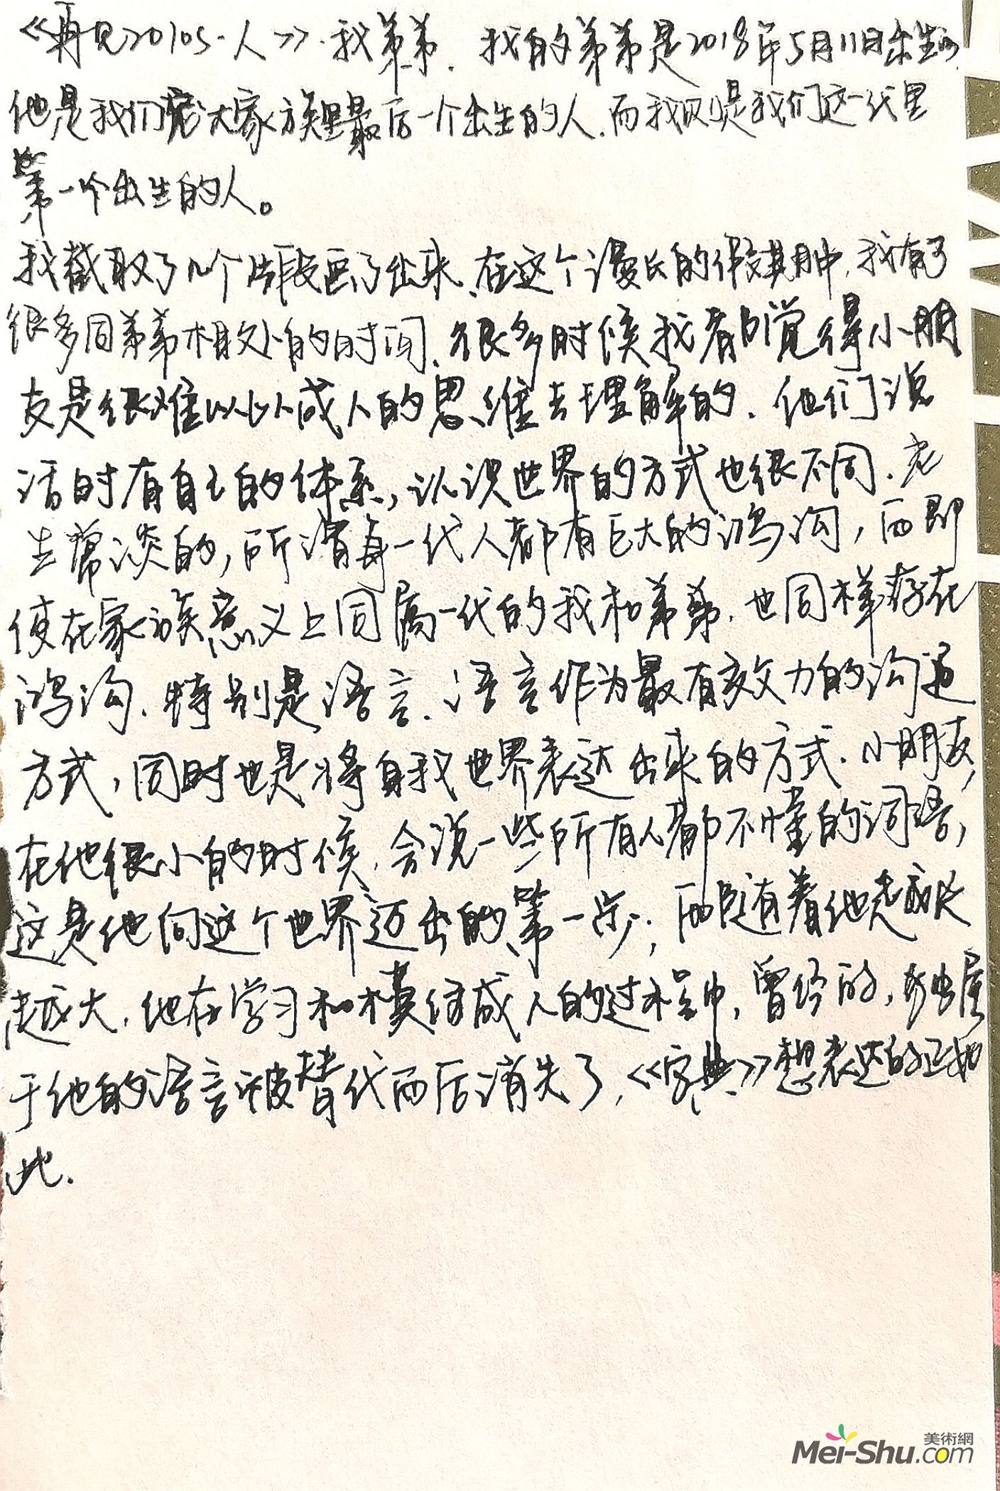 《再见2010s·人》·我弟弟. 我的弟弟是2018年5月11日出生的.
他是我们大家族里最后一个出生的人.而我则是我们这一代里
第一个出生的人。
我截取了几个片段画了出来.在这个漫长的假期中.我有了
很多同弟弟相处的时间.很多时候我都觉得小朋
友是很难以以成人的思维去理解的.他们说
话时有自己的体系,认识世界的方式也很不同.老
生常谈的,所谓每一代人都有巨大的鸿沟,而即
使在家族意义上同属一代的我和弟弟.也同样存在
鸿沟.特别是语言.语言作为最有效力的沟通
方式,同时也是将自我世界表达出来的方式.小朋友,
在他很小的时候.会说一些所有人都不懂的词语,
这是他向这个世界迈出的第一步;而随着他越长
越大.他在学习和模仿成人的过程中,曾经的,独属
于他的语言被替代而后消失了,《字典》想表达的正如
此.
美術網
Mei-Shu.com